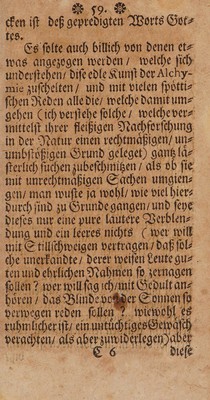 ❀ 59. ❀
cken ist deß gepredigten Worts Got-
tes.
Es solte auch billich von denen et-
was angezogen werden / welche sich
understehen / dise edle Kunst der Alchy-
mie zuscheiten / und mit vielen spötti-
schen Reden alle die / welche damit um-
gehen (ich verstehe solche / welche ver-
mittelst ihrer fleißigen Nachforschung
in der Natur einen rechtmäßigen / un-
umbstoßigen Grund geleget) gantz lä-
sterlich suchen zubeschmitzen / als ob sie
mit unrechtmäßigen Sachen umgien-
gen / man muste ja wohl / wie viel hier-
durch sind zu Grunde gangen / und seye
dieses nur eine pure lautere Verblen-
dung und ein leeres nichts (wer will
mit Stillschweigen vertragen / daß sol-
che unerkandte / derer weisen Leute gu-
ten und ehrlichen Nahmen so zernagen
sollen? wer will sag ich / mit Gedult an-
hören / das Blinde von der Sonnen so
verwegen reden sollen? wiewohl es
ruhmlicher ist / ein untüchtiges Gewäsch
verachten / als aber zuwiderlegen) aber
C 6 diese